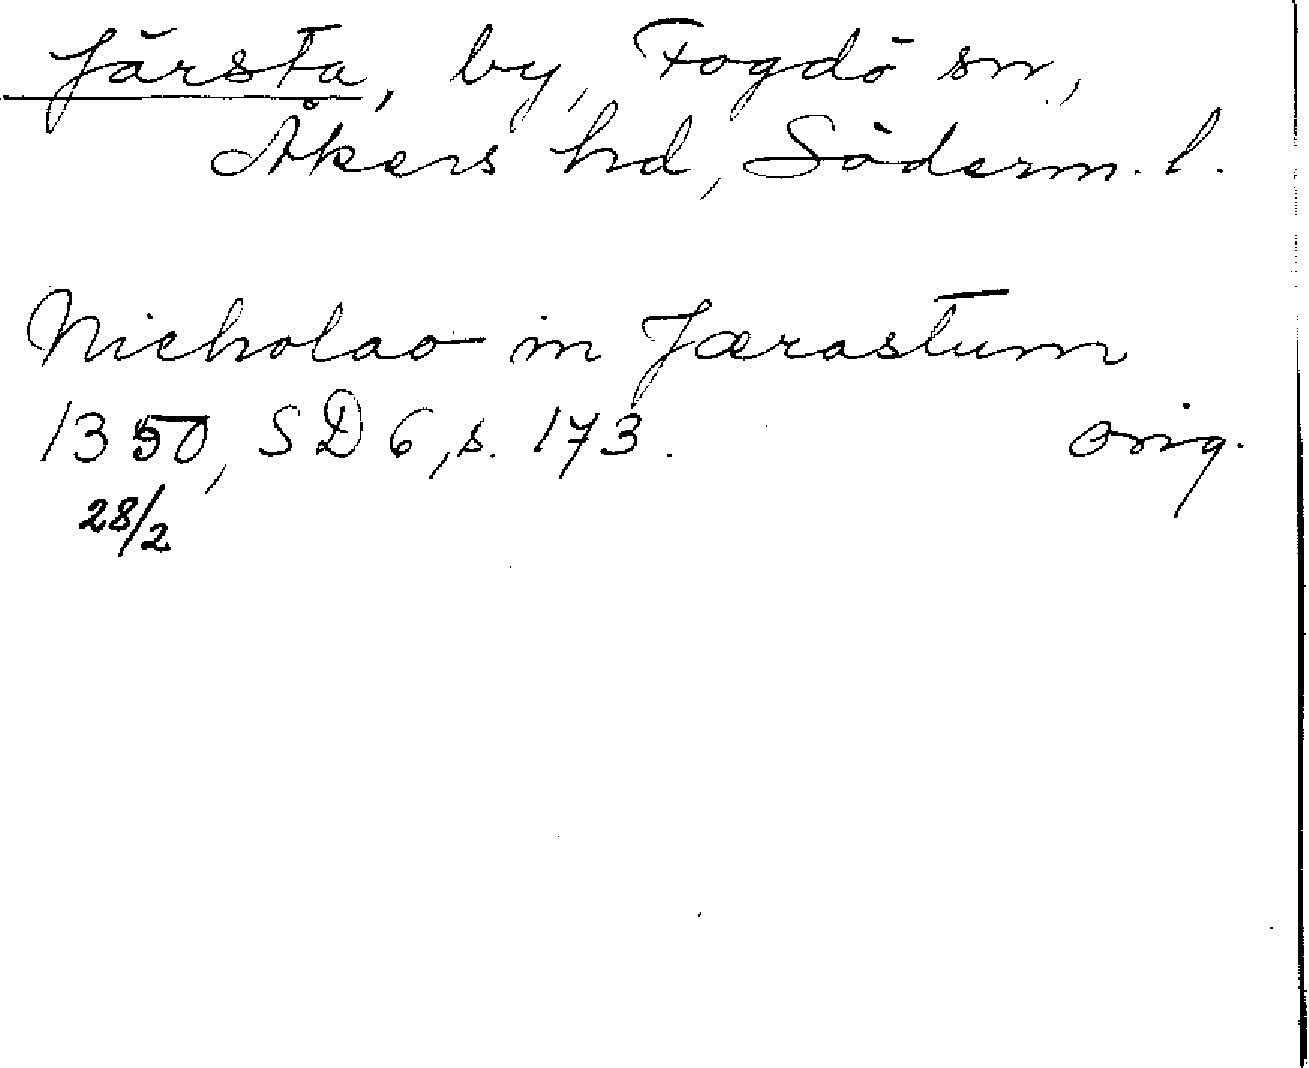 Järsta, by, Fogdö sn,
Åkers hd, Söderm. l.
Nicholao in Jærastum
1350, SD 6, s. 173. orig.
28/2